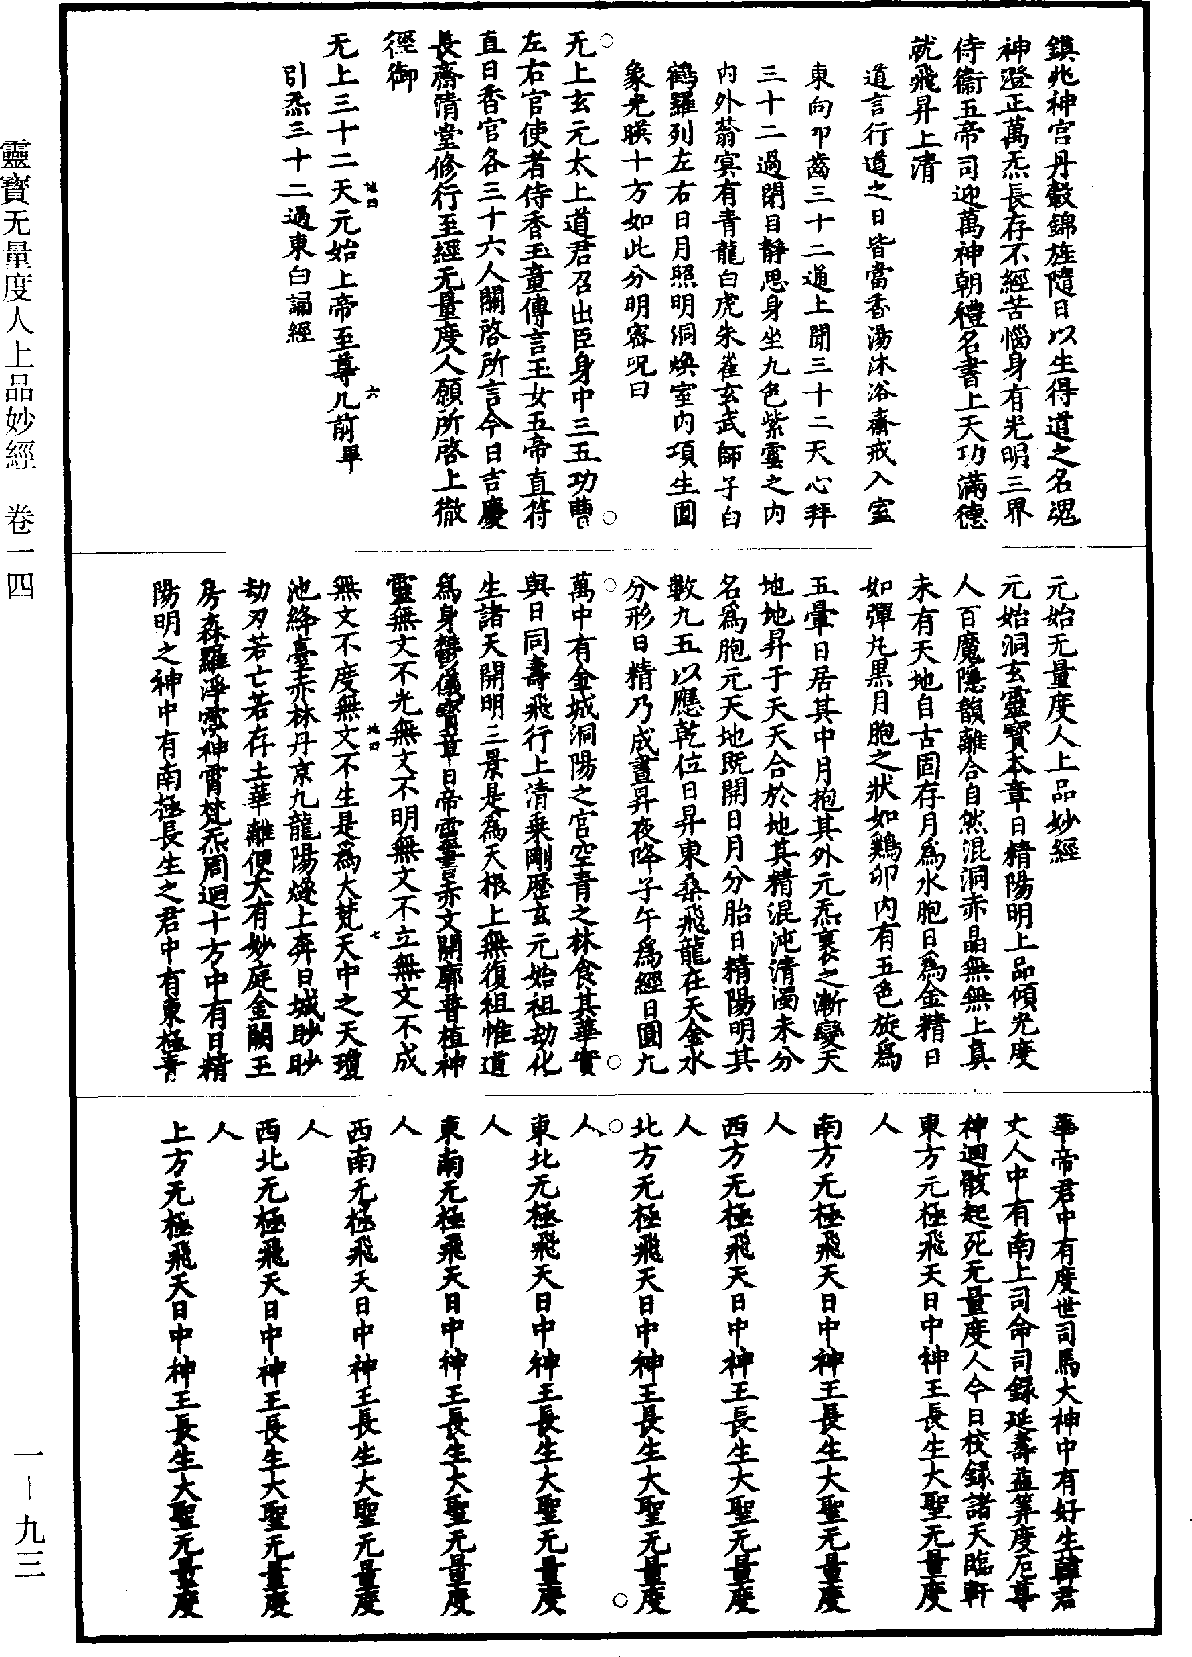 鎮兆神宮丹轂錦旌隨日以生得道之名魂
神澄正萬炁長存不經苦惱身有光明三界
侍衛五帝司迎萬神朝禮名書上天功滿德
就飛昇上清
道言行道之日皆當香湯沐浴齋戒入室
東向叩齒三十二通上聞三十二天心拜
三十二過閉目靜思身坐九色紫雲之內
內外蓊冥有青龍白虎朱雀玄武師子白
鶴羅列左右日月照明洞煥室內項生圓
象光暎十方如此分明密呪曰
无上玄元太上道君召出臣身中三五功曹
左右官使者侍香玉童傳言玉女五帝直符
直日香官各三十六人關啓所言今日吉慶
長齋清堂修行至經无量度人願所啓上徹
徑御
无上三十二天元始上帝至尊几前畢
引炁三十二過東向誦經
元始无量度人上品妙經
元始洞玄靈寶本章日精陽明上品傾光度
人百魔隱韻離合自然混洞赤晶無無上真
未有天地自古固存月為水胞日為金精日
如彈丸黑月胞之狀如鷄卵內有五色旋為
五暈日居其中月抱其外元炁裹之漸變天
地地昇于天天合於地其精混沌清濁未分
名為胞元天地既開日月分胎日精陽明其
數九五以應乾位日昇東桑飛龍在天金水
分形日精乃成晝昇夜降子午為經日圓九
萬中有金城洞陽之宮空青之林食其華實
與日同壽飛行上清乘剛歷玄元始祖劫化
生諸天開明三景是為天根上無復祖惟道
為身鬱儀寶章日帝靈書赤文開廓普植神
靈無文不光無文不明無文不立無文不成
無文不度無文不生是為大梵天中之天瓊
池絳臺赤林丹京九龍陽燧上奔日城眇眇
劫刃若亡若存土華離便大有妙庭金闕玉
房森羅淨霐神霄梵炁周迴十方中有日精
陽明之神中有南極長生之君中有東極青
華帝君中有度世司馬大神中有好生韓君
丈人中有南上司命司錄延壽益筭度厄尊
神迴骸起死无量度人今日校錄諸天臨軒
東方无極飛天日中神王長生大聖无量度
人
南方无極飛天日中神王長生大聖无量度
人
西方无極飛天日中神王長生大聖无量度
人
北方无極飛天日中神王長生大聖无量度
人
東北无極飛天日中神王長生大聖无量度
人
東南无極飛天日中神王長生大聖无量度
人
西南无極飛天日中神王長生大聖无量度
人
西北无極飛天日中神王長生大聖无量度
人
上方无極飛天日中神王長生大聖无量度
靈寶无量度人上品妙經 卷一四
一—九三